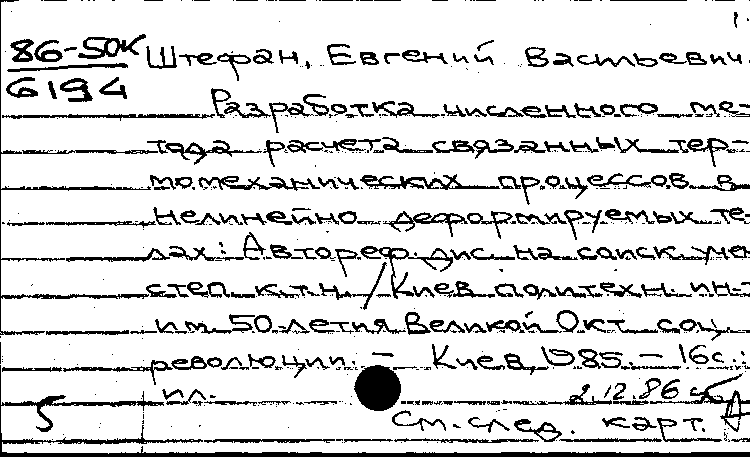 1.
86-50к Штефан, Евгений Васильевич.
6194
Разработка численного ме-
тода расчета связанных тер-
момеханических процессов в
нелинейно деформируемых те-
лах: Автореф. дис. на соиск. учен
степ. к.т.н. / Киев. политехн. ин-т
им. 50-летия Великой Окт. соц.
революции. - Киев, 1985. - 16с.:
ил.
2.12.86
5
См. след. карт.